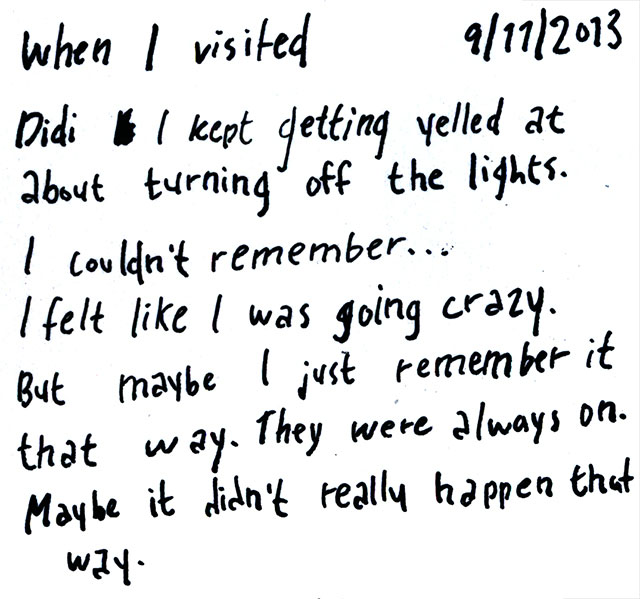 When I visited 9/11/2013
Didi I kept getting yelled at
about turning off the lights.
I couldn't remember...
I felt like I was going crazy.
But maybe I just remember it
that way. They were always on.
Maybe it didn't really happen that
way.